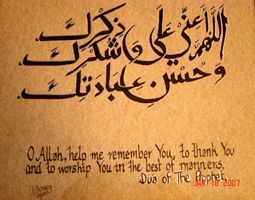 اللهم أعني على ذكرك
وشكرك
وحسن عبادتك
O Allah, help me remember You, to thank You
and to worship You in the best of manners.
Dua of The Prophet
JAN 18 2007